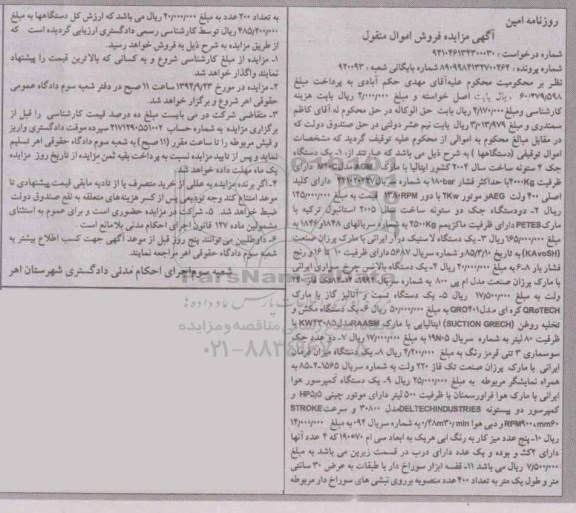 روزنامه امین
آگهی مزایده فروش اموال منقول
شماره درخواست : ۹۲۱۰۴۶۱۳۴۳۰۰۰۳۰
شماره پرونده : ۸۹۰۹۹۸۴۱۳۲۷۰۰۲۶۴ شماره بایگانی شعبه : ۹۲۰۰۹۳
نظر بر محکومیت محکوم علیه آقای مهدی حکم آبادی به پرداخت مبلغ
۶۰۰۳۷۹٫۵۹۸ ریال بابت اصل خواسته و مبلغ ۲٫۰۰۰٫۰۰۰ ریال بابت هزینه
کارشناسی ومبلغ ۲٫۸۷۰٫۰۰۰ ریال بابت حق الوکاله در حق محکوم له آقای کاظم
سمندری و مبلغ ۳٫۰۱۳٫۹۷۹ ریال بابت نیم عشر دولتی در حق صندوق دولت که
در مقابل مبالغ محکوم به اموالی از محکوم علیه توقیف گردید که مشخصات
اموال توقیفی (دستگاهها) به شرح ذیل می باشد که عبارتند از: ۱- یک دستگاه
جک ۴ ستونه ساخت سال ۲۰۰۴ کشور ایتالیا با مارک دارای
ظرفیت ۴۰۰۰Kg با حداکثر فشار ۱۸۰bar به شماره سریال دارای کلید
اصلی ۴۰۰ ولت AEG و موتور ۲Kw با دور RPM قیمت به مبلغ ۱۴۵/۰۰۰/۰۰۰
ریال ۲- دودستگاه جک دو ستونه ساخت سال ۲۰۰۵ استانبول ترکیه با
مارک PETES دارای ظرفیت ماکزیمم ۲۵۰۰Kg به شماره سریالهای ۱۸۴۸و۱۸۴۶ به
مبلغ ۱۶۵/۰۰۰/۰۰۰ ریال ۳- یک دستگاه لاستیک درآر ایرانی با مارک پرزان صنعت
(KAvoSH) به تاریخ ۸۵/۳/۱۰ و شماره سریال ۵۶۸۷ دارای ظرفیت ۱۰ تا ۱۶ و رنج
فشار بار ۸-۶ به مبلغ ۲۰/۰۰۰/۰۰۰ ریال ۴- یک دستگاه بالانس چرخ سواری ایرانی
با مارک پرزان صنعت مدل ام پی ۸۰۰ به شماره سریال تک فاز ۲۲۰
ولت به مبلغ ۱۷/۵۰۰/۰۰۰ ریال ۵- یک دستگاه تست و آنالیز گاز با مارک
QRoTECH کره ای مدل QRO۴۰۱ به مبلغ ۵۰/۰۰۰/۰۰۰ ریال ۶- یک دستگاه مکش و
تخلیه روغن (SUCTION GRECH) ایتالیایی با مارک RAASM مدل KW۴۳۰۸۵ با
ظرفیت ۸۰ لیتر به شماره سریال ۱۹N۰۵ به مبلغ ۱۷/۰۰۰/۰۰۰ ریال ۷- دو عدد جک
سوسماری ۳ تنی قرمز رنگ به مبلغ ۲/۲۰۰/۰۰۰ ریال ۸- یک دستگاه میزان فرمان
ایرانی با مارک پرزان صنعت تک فاز ۲۲۰ ولت به شماره سریال ۱۵۶۵-۲-۸۵ به
همراه نمایشگر مربوطه به مبلغ ۲۵/۰۰۰/۰۰۰ ریال ۹- یک دستگاه کمپرسور هوا
ایرانی با مارک هوا فراورسمنان با ظرفیت ۵۰۰ لیتر دارای موتور چینی HP۵/۵ و
کمپرسور دو پیستونه DELTECHINDUSTRIES مدل ۳۰۸۰۰ و سرعت STROKE
۶۰mm، RPM۹۰۰ و دبی هوا ۰/۴۸m۳/min به شماره سریال ۰۹۴ به مبلغ ۱۴/۰۰۰/۰۰۰
ریال ۱۰- پنج عدد میز کار به رنگ آبی هریک به ابعاد سی ام ۷۰*۱۹۰ که ۴ عدد آنها
دارای ۲کشو بوده و یک عدد دارای درب در قسمت زیرین می باشد به مبلغ
۷/۵۰۰/۰۰۰ ریال می باشد ۱۱- قفسه ابزار سوراخ دار با طبقات به عرض ۳۰ سانتی
متر و طول یک متر به تعداد ۴۰۰ عدد منصوبه برروی نبشی های سوراخ دار مربوطه
به تعداد ۲۰۰ عدد به مبلغ ۲۰/۰۰۰/۰۰۰ ریال می باشد که ارزش کل دستگاهها به مبلغ
۴۸۵/۲۰۰/۰۰۰ ریال توسط کارشناسی رسمی دادگستری ارزیابی گردیده است که
از طریق مزایده به شرح ذیل به فروش خواهد رسید.
۱- مزایده از مبلغ کارشناسی شروع و به کسانی که بالاترین قیمت را پیشنهاد
نمایند واگذار خواهد شد.
۲- مزایده در مورخ ۱۳۹۲/۹/۲۳ ساعت ۱۱ صبح در دفتر شعبه سوم دادگاه عمومی
حقوقی اهر شروع و برگزار خواهد شد.
۳- متقاضی شرکت در می بایست مبلغ ده درصد قیمت کارشناسی را قبل از
برگزاری مزایده به شماره حساب ۲۱۷۱۲۹۰۵۵۱۰۰۲ سپرده موقت دادگستری واریز
و فیش مربوطه را تا ساعت مقرر (۱۱ صبح) به شعبه سوم دادگاه حقوقی اهر تسلیم
نماید و پس از تایید مزایده نسبت به پرداخت بقیه ثمن مزایده از تاریخ روز مزایده
یک ماه مهلت داده خواهد شد.
۴- اگر برنده مزایده به عللی از خرید متصرف یا از تادیه مابقی قیمت پیشنهادی تا
موعد امتناع کند وجه تودیعی پس از کسر هزینه‌های متعلقه به نفع صندوق دولت
ضبط خواهد شد. ۵- شرکت در مزایده حضوری است و برای عموم به استثنای
مشمولین ماده ۱۲۷ قانون اجرای احکام مدنی بلامانع است.
۶- داوطلبین می‌توانند پنج روز قبل از موعد آگهی جهت کسب اطلاع بیشتر به
شعبه سوم دادگاه حقوقی اهر مراجعه نمایند.
شعبه سوم اجرای احکام مدنی دادگستری شهرستان اهر
ParsNamadData
۰۲۱-۸۸۳۴۹۶۷۰-۵